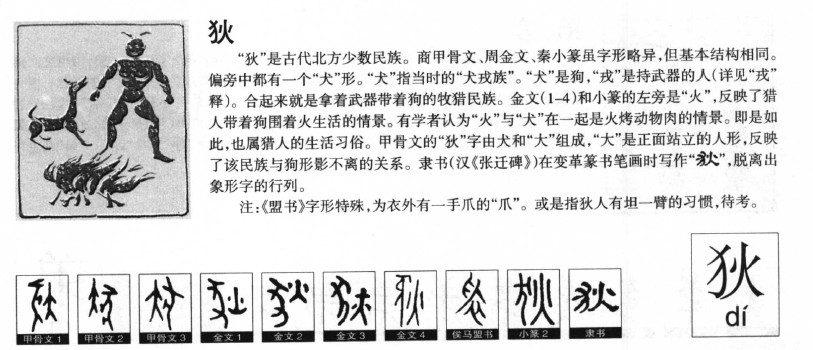 狄
“狄”是古代北方少数民族。商甲骨文、周金文、秦小篆虽字形略异,但基本结构相同。
偏旁中都有一个“犬”形。“犬”指当时的“犬戎族”。“犬”是狗,“戎”是持武器的人(详见“戎”
释)。合起来就是拿着武器带着狗的牧猎民族。金文(1-4)和小篆的左旁是“火”,反映了猎
人带着狗围着火生活的情景。有学者认为“火”与“犬”在一起是火烤动物肉的情景。即是如
此,也属猎人的生活习俗。甲骨文的“狄”字由犬和“大”组成,“大”是正面站立的人形,反映
了该民族与狗形影不离的关系。隶书(汉《张迁碑》)在变革篆书笔画时写作“狄”,脱离出
象形字的行列。
注:《盟书》字形特殊,为衣外有一手爪的“爪”。或是指狄人有坦一臂的习惯,待考。
狄
dí
甲骨文1
甲骨文2
甲骨文3
金文1
金文2
金文3
金文4
侯马盟书
小篆2
隶书